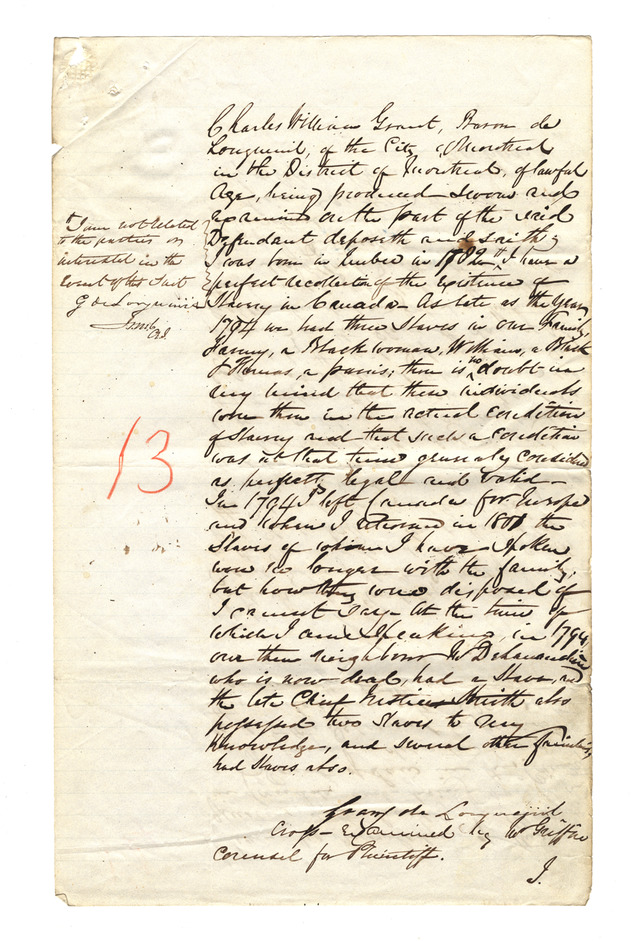 Charles William Grant, Baron de
Longueuil, of the City of Montreal
in the District of Montreal, of lawful
Age, being produced Sworn and
Examined on the part of the said
Defendant deposeth and saith,
I was born in Quebec in 1782 I have a
perfect recollection of the existence of
Slavery in Canada - As late as the year
1794 we had three Slaves in our Family,
a Black woman, William, a Black
& Thomas, a panis; there is no doubt in
my mind that these individuals
were then in the actual condition
of Slavery and that such a condition
was at that time generally considered
as perfectly legal and valid -
In 1794 I left Canada for Europe
and when I returned in 1801 the
Slaves of whom I have spoken
were no longer with the family,
but how they were disposed of
I cannot say. At the time of
which I am speaking, in 1794,
our then neighbour Mr
who is now dead, had a Slave, and
the late Chief Justice Smith also
possessed two Slaves to my
Knowledge, and several other families
had Slaves also.
Grant de Longueuil
Cross-Examined by Mr Griffin
Counsel for Plaintiff.
I.
I am not related
to the parties or
interested in the
event of this Suit
G de Longueuil
13